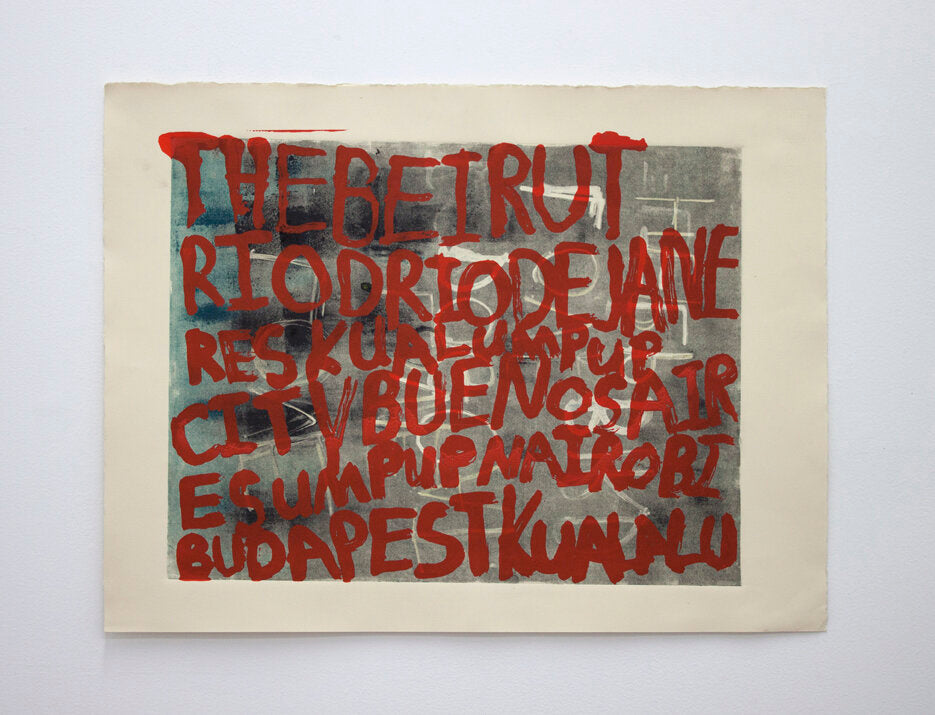 THEBEIRUT
RIODRIODEJANE
RESKUALUMPUP
CITYBUENOSAIR
ESUMPUPNAIROBI
BUDAPESTKUALALU